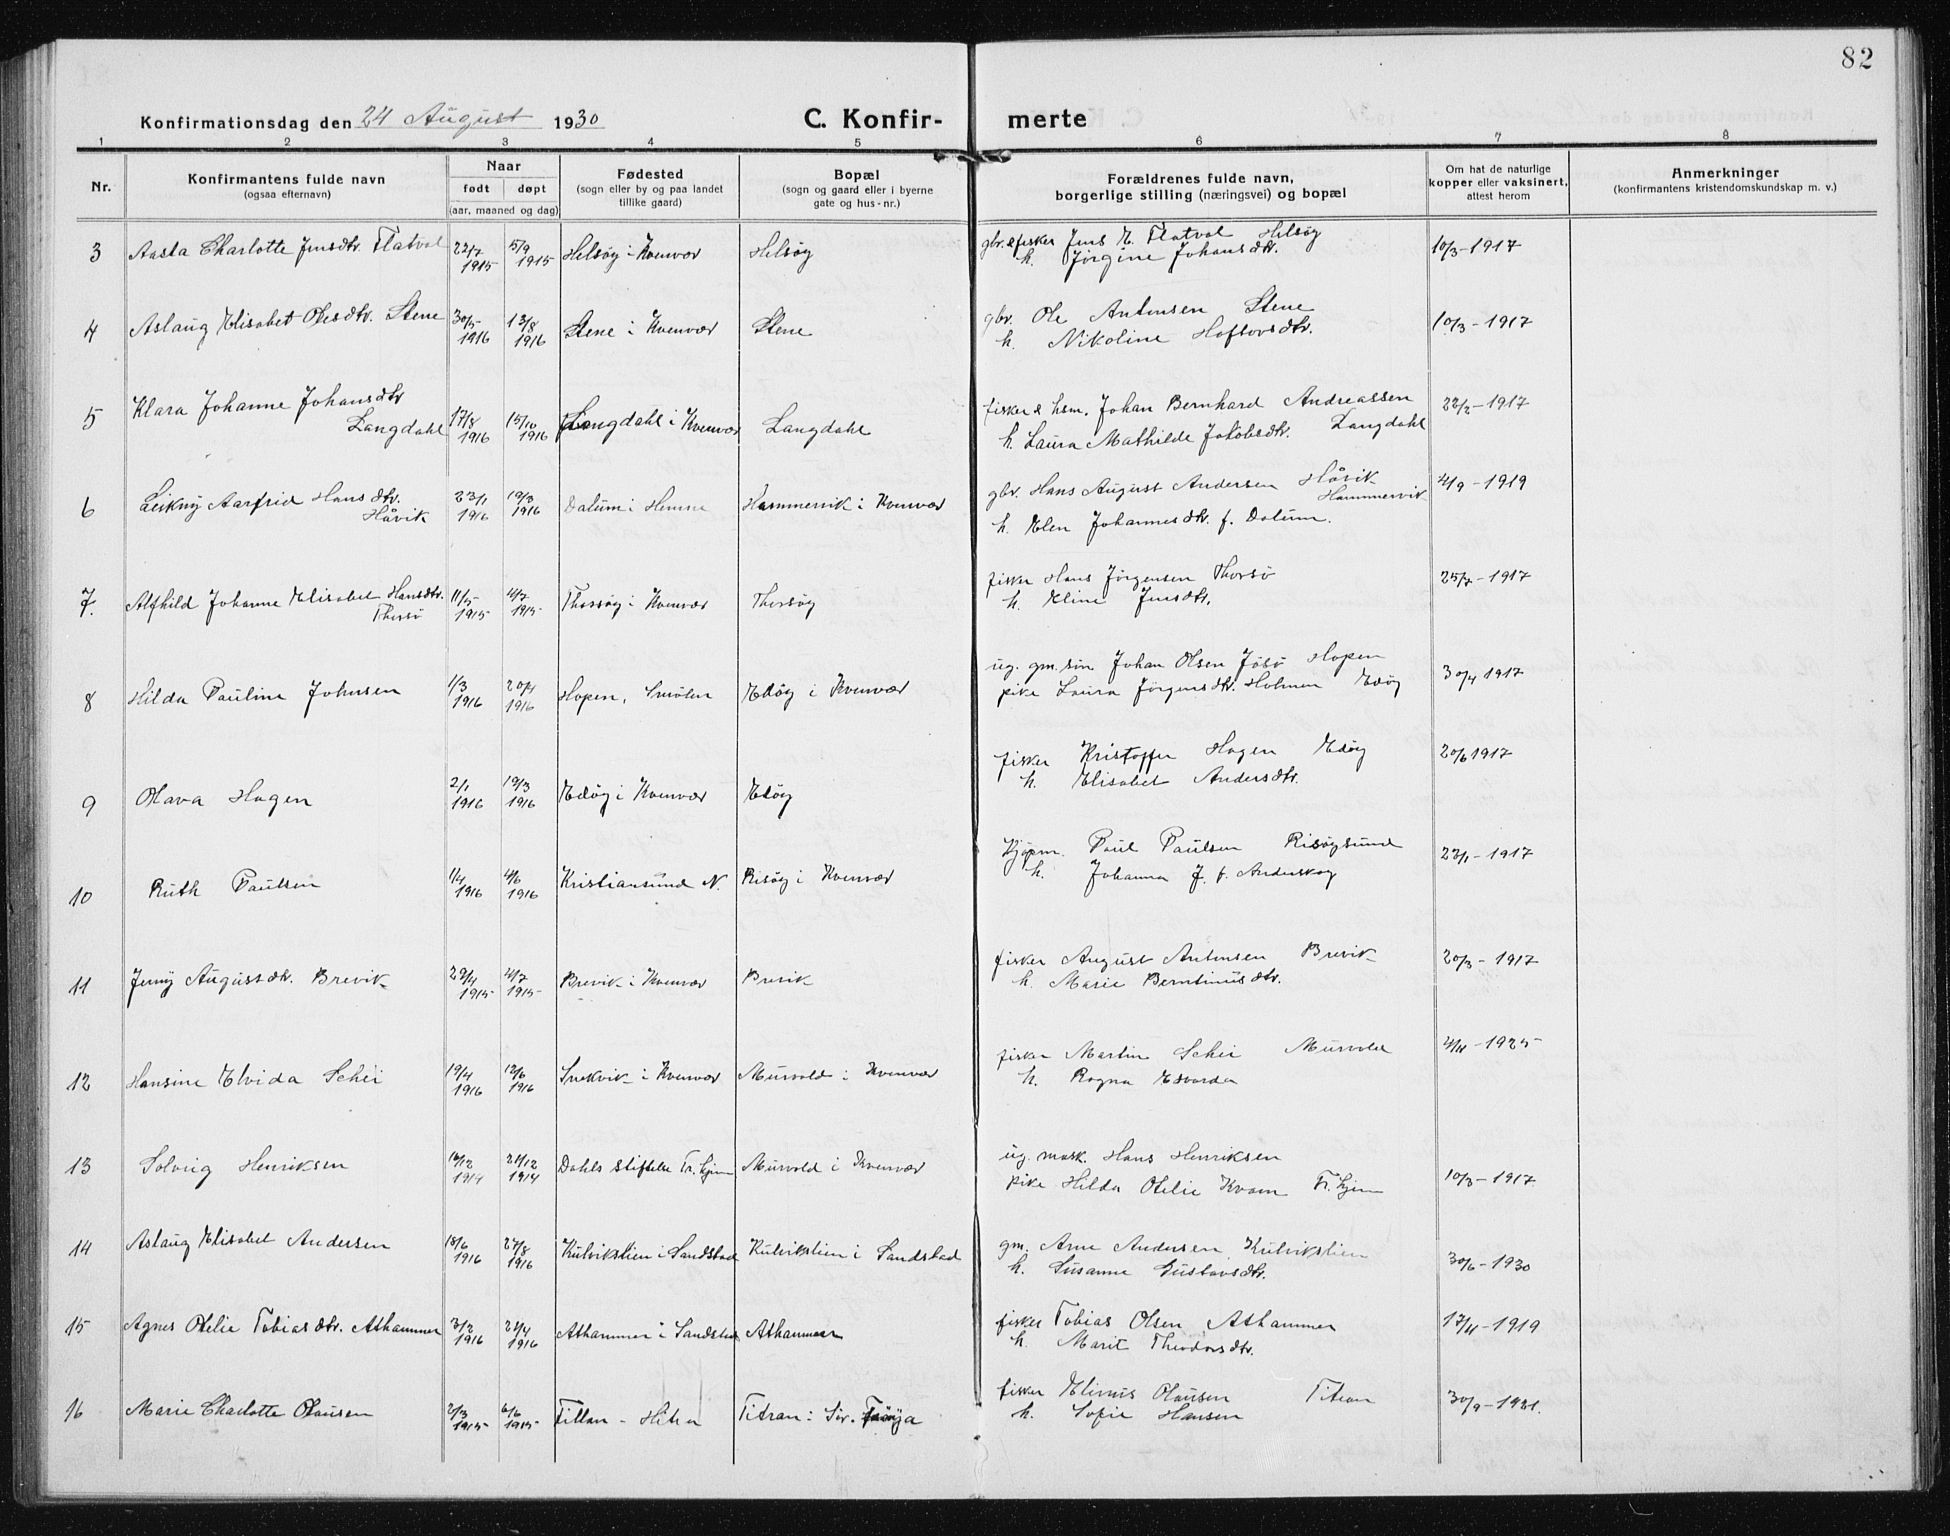 82
Konfirmationsdag den 24 August 1930
C. Konfir- merte
1 2 3 4 5 6 7 8
Nr.
Konfirmantens fulde navn
(ogsaa efternavn)
Naar
født døpt
(aar, maaned og dag)
Fødested
(sogn eller by og paa landet
tillike gaard)
Bopæl
(sogn og gaard eller i byerne
gate og hus-nr.)
Forældrenes fulde navn,
borgerlige stilling (næringsvei) og bopæl
Om hat de naturlige
kopper eller vaksinert,
attest herom
Anmerkninger
(konfirmantens kristendomskundskap m. v.)
3 Aasta Charlotte Jensdtr. Flatval 22/7 1915 5/9 1915 Helsøy i Kvenvær Helsøy
gbr. & fisker Jens E. Flatval Helsøy
h. Jørgine Johansdtr.
10/3-1917
4 Aslaug Elisabet Olesdtr. Stene 30/5 1916 13/8 1916 Stene i Kvenvær Stene
gbr. Ole Antonsen Stene
h. Nikoline Hoftovsdtr.
10/3-1917
5 Klara Johanne Johansdtr
Langdahl 17/8 1916 15/10 1916 Langdahl i Kvenvær Langdahl
fisker & hsm. Johan Bernhard Andreassen
h. Laura Mathilde Jakobsdtr. Langdahl
22/2-1917
6 Leikny Aarfrid Hansdtr.
Håvik 23/1 1916 19/3 1916 Dalum i Hemne Hammervik i Kvenvær
gbr. Hans August Andersen Håvik
Hammervik
h. Elen Johannesdtr. f. Dalum.
4/9-1919
7. Alfhild Johanne Elisabet Hansdtr.
Thorsø 11/5 1915 4/7 1915 Thorsøy i Kvenvær Thorsøy
fisker Hans Jørgensen Thorsø
h. Eline Jensdtr.
25/7-1917
8 Hilda Pauline Johnsen 1/3 1916 20/4 1916 Hopen, Smølen Edøy i Kvenvær
ug. gm. søn Johan Olsen Jøsø Hopen
pike Laura Jørgensdtr. Holmen Edøy
30/4 1917
9 Olava Hagen 2/1 1916 19/3 1916 Edøy i Kvenvær Edøy
fisker Kristoffer Hagen Edøy
h. Elisabet Andersdtr.
20/6 1917
10 Ruth Paulsen 1/4 1916 4/6 1916 Kristiansund N. Risøy i Kvenvær
Kjøpm. Paul Paulsen Risøysund
h. Johanna J. f. Anderskog
22/1-1917
11 Jenny Augustdtr. Brevik 29/4 1915 4/7 1915 Brevik i Kvenvær Brevik
fisker August Antonsen Brevik
h. Marie Berntinusdtr.
20/3-1917
12 Hansine Elvida Schei 19/4 1916 12/6 1916 Snekvik i Kvenvær Murvold i Kvenvær
fisker Martin Schei Murvold
h. Ragna Edvarda
4/11-1925
13 Solveig Henriksen 16/12 1914 21/12 1914 Dahls stiftelse Tr.hjem Murvold i Kvenvær
ug. mask. Hans Henriksen
pike Hilda Otelie Kvam Tr.hjem
10/3-1917
14 Aslaug Elisabet Andersen 18/6 1916 27/8 1916 Kulvikslien i Sandstad Kulvikslien i Sandstad
gm. Arne Andersen Kulvikslien
h. Susanne Gustavsdtr.
30/6-1930
15 Agnes Otelie Tobiasdtr. Athammer 3/2 1916 24/4 1916 Athammer i Sandstad Athammer
fisker Tobias Olsen Athammer
h. Marit Theodorsdtr.
17/11-1919
16 Marie Charlotte Olausen 2/3 1915 6/6 1915 Fillan - Hitra Titran i Sør-Frøya
fisker Elinus Olausen Titran
h. Sofie Hansen
30/9-1921.